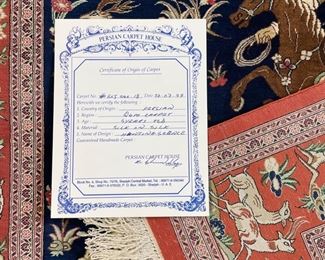 PERSIAN CARPET HOUSE
Certificate of Origin of Carpet
Carpet No. Date
Herewith we certify the following
1. Country of Origin : PERSIAN
2. Region : QUM CARPET
3. Age : 5 YEARS OLD
4. Material : SILK ON SILK
5. Name of Design : HUNTING SCENCE
Guaranteed Handmade Carpet
PERSIAN CARPET HOUSE
Sharjah Central Market, Tel.
P. O. Box Sharjah - U.A.E.